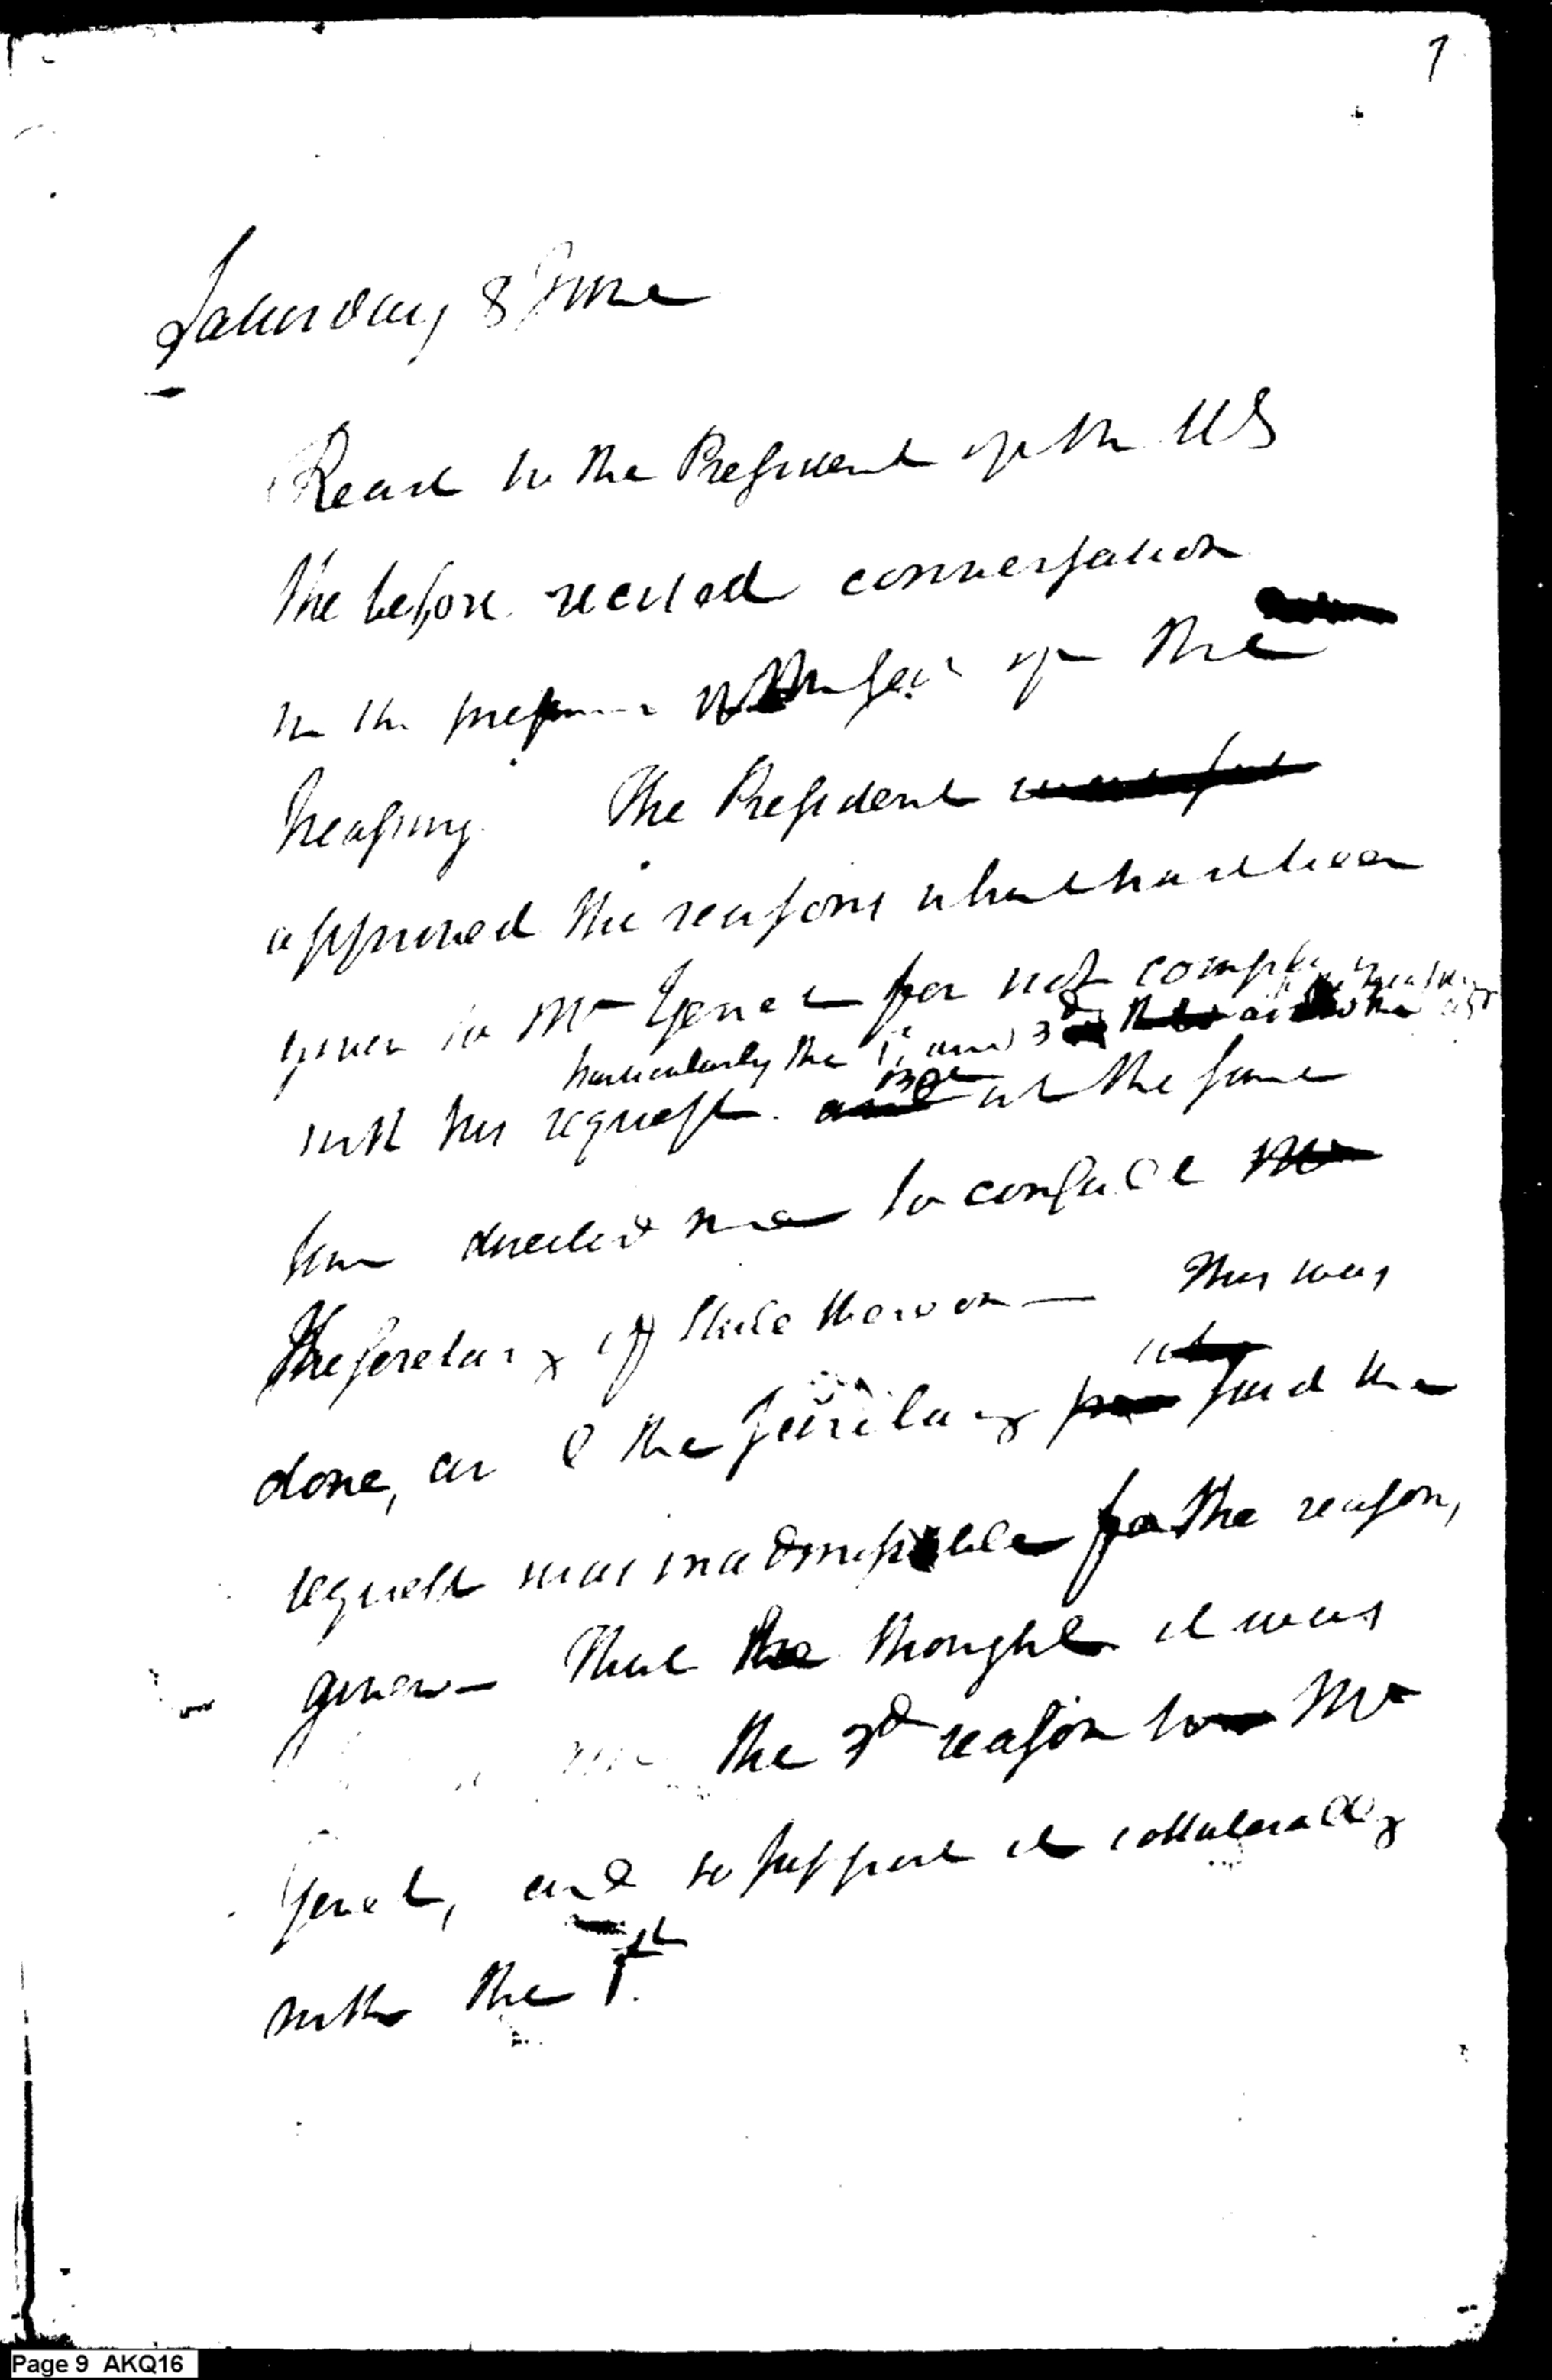 7
Saturday 8 June
Read to the President of the US
the before recited conversation
in the presence of the Sec. of the
treasury. The President
approved the reasons what had been
given to Mr Genet for not comply
particularly the 1st and 3d
with his request. at the same
time directed me to consult
the Secretary of State thereon — This was
done, and the Secretary said the
request was inadmissible for the reasons
given — That he thought it was
the 3d reason to Mr
Genet, and to support it collaterally
with the
Page 9 AKQ16